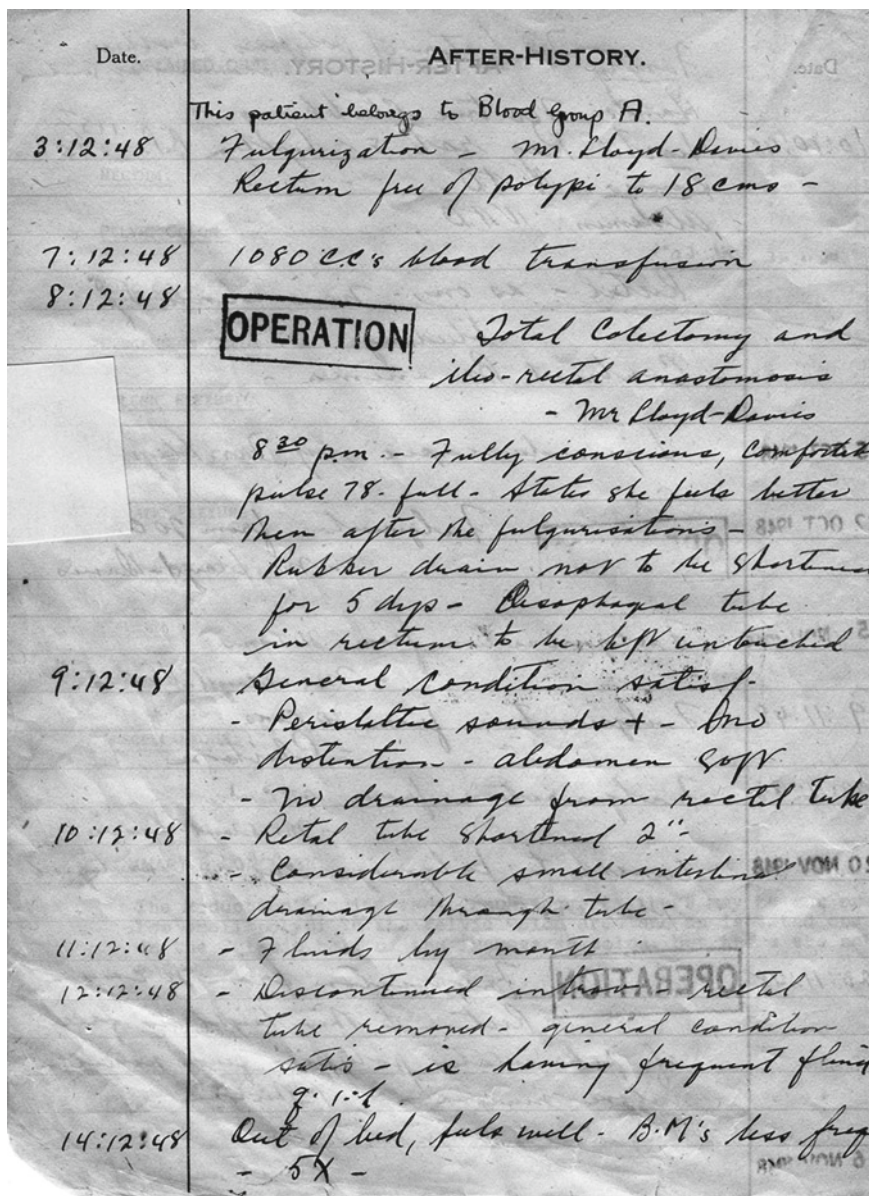 Date. AFTER-HISTORY.
This patient belongs to Blood Group A.
3:12:48 Fulgurization - Mr. Lloyd-Davies
Rectum free of polypi to 18 cms -
7:12:48 1080 C.C's blood transfusion
8:12:48
OPERATION Total Colectomy and
ileo-rectal anastomosis
- Mr Lloyd-Davies
8 30 p.m. - Fully conscious,
pulse 78. full - States she feels better
then after the fulgurisations -
Rubber drain not to be
for 5 dys - Oesophageal tube
in rectum to be left untouched
9:12:48 General condition satisf-
- Peristaltic sounds + - no
distention - abdomen soft
- No drainage from rectal tube
10:12:48 - Retal tube shortened 2" -
- Considerable small
drainage through tube -
11:12:48 - Fluids by mouth
12:12:48 - Discontinued - rectal
tube removed - general condition
satis - is having frequent
14:12:48 Out of bed, feels well - B.M's less freq
- 5X -